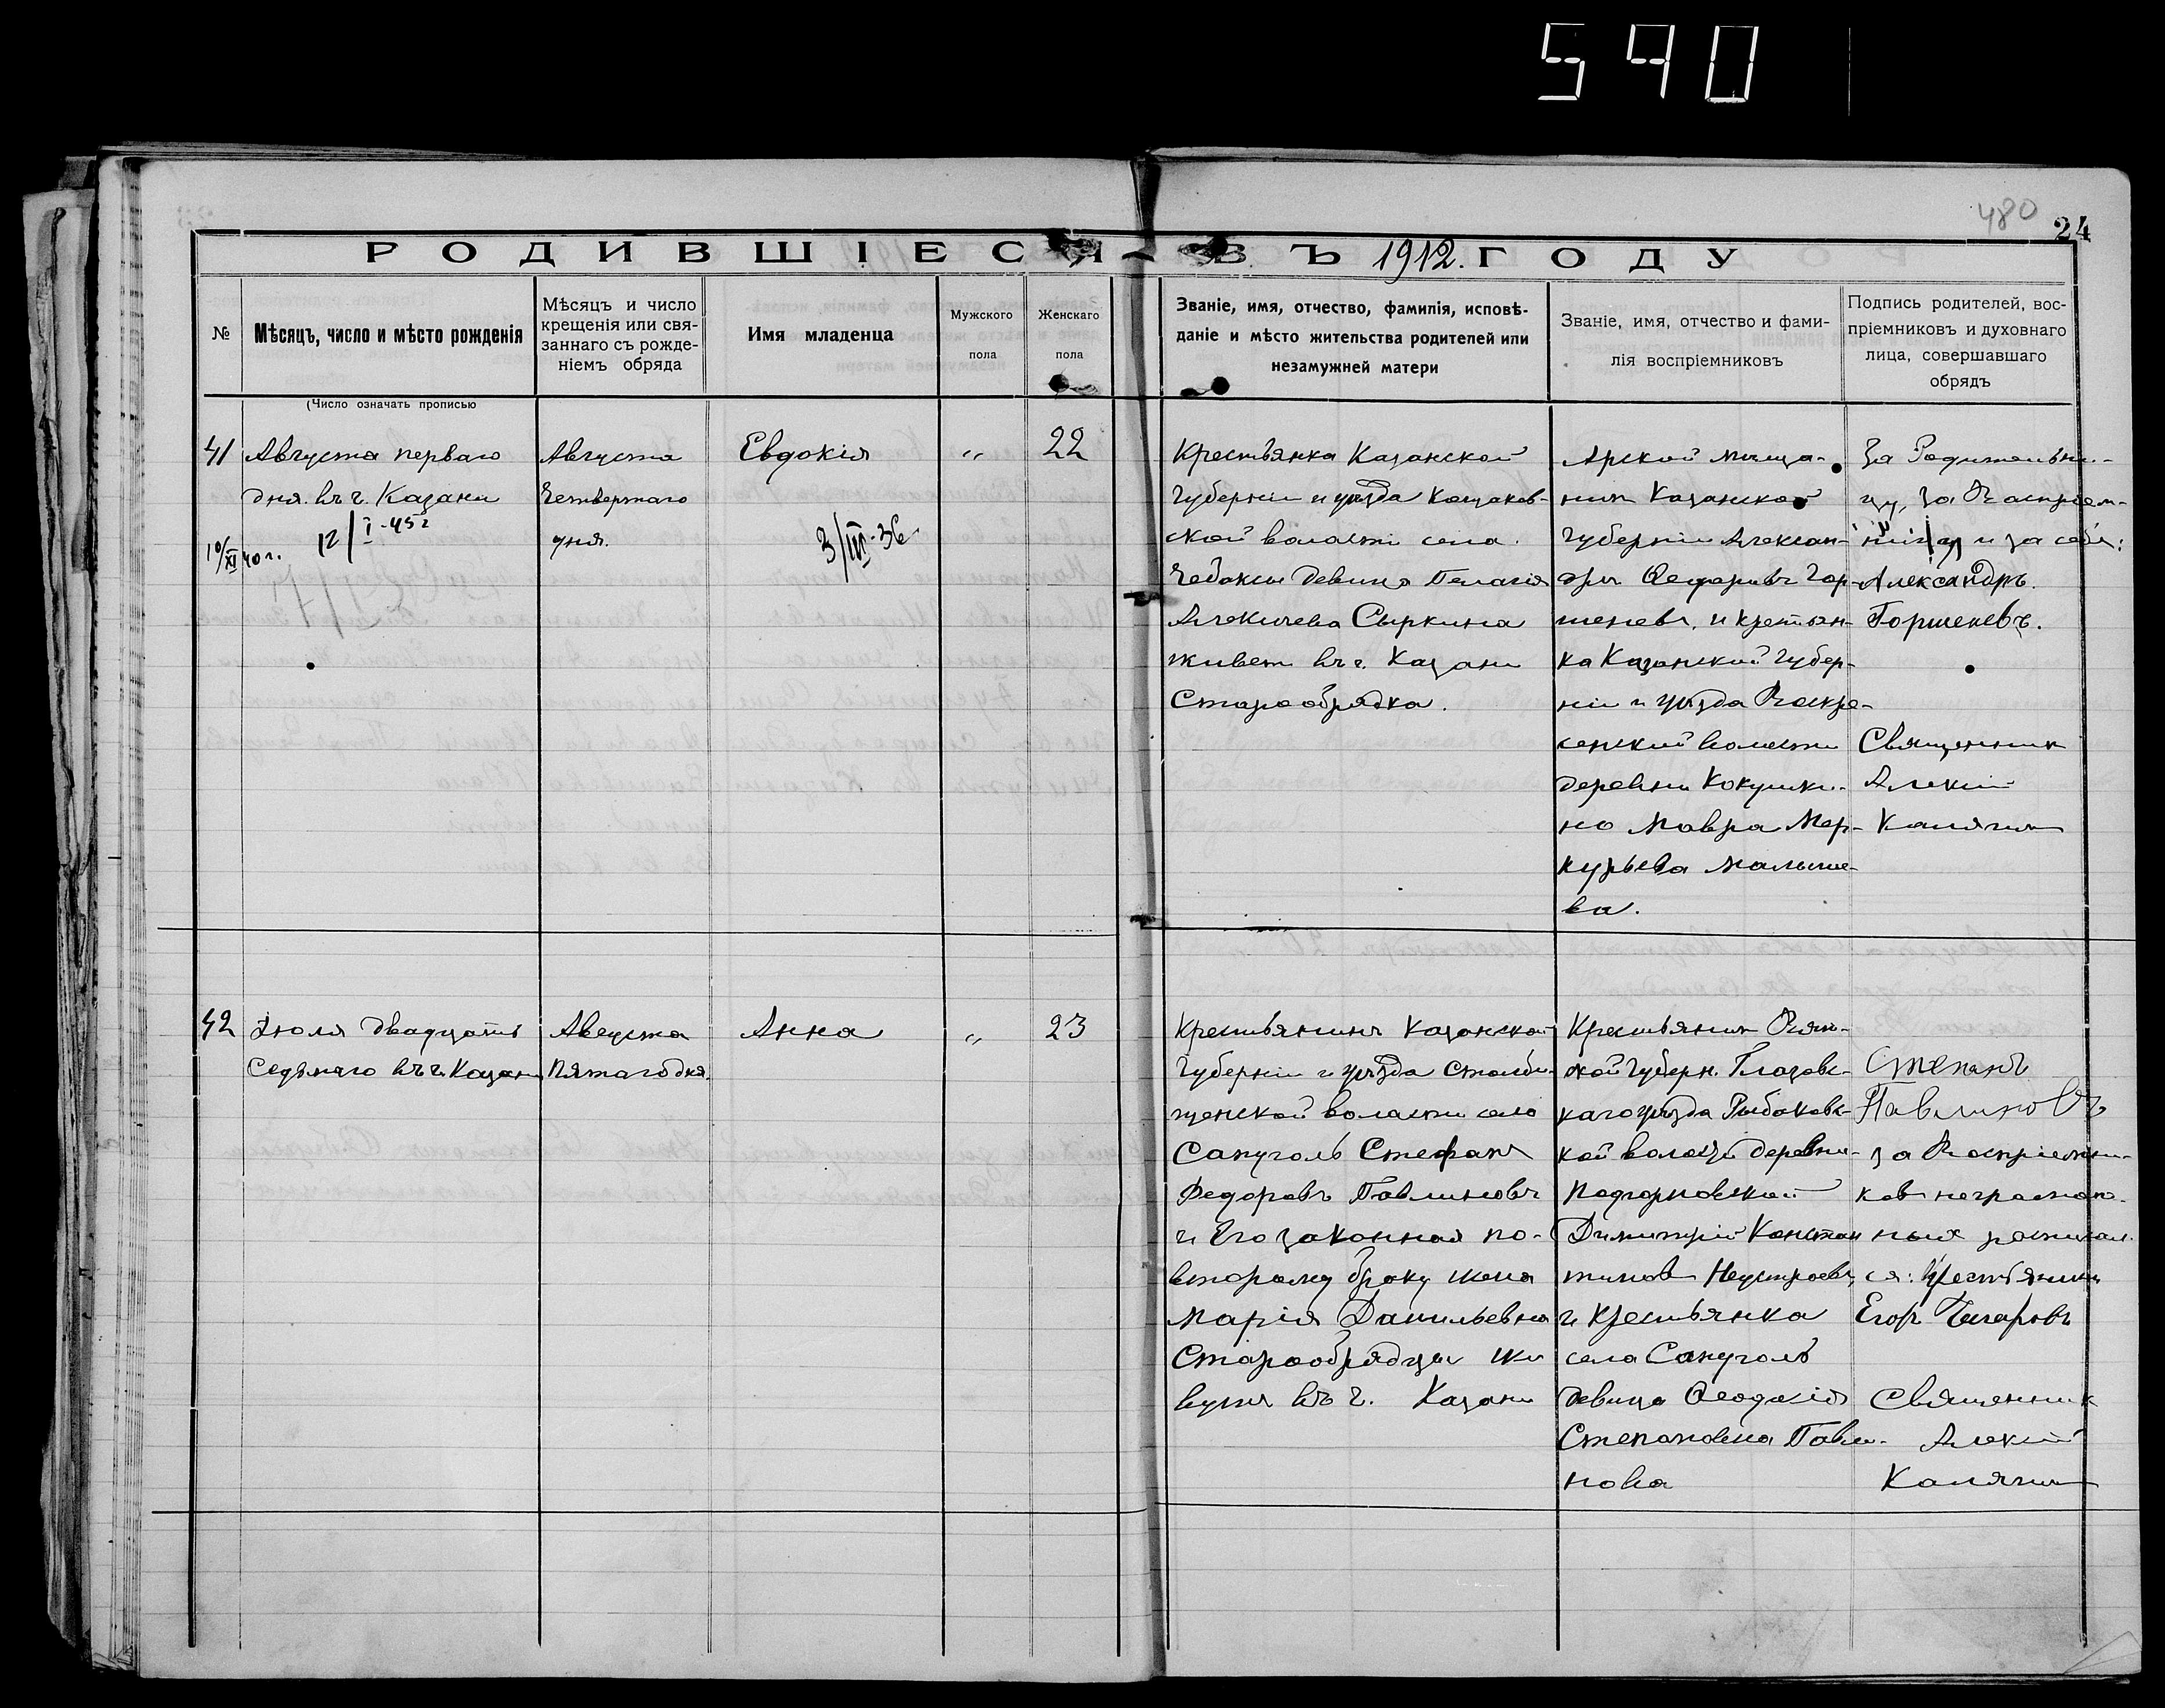 540
480
24
РОДИВШІЕСЯ ВЪ 1912. ГОДУ
№
Мѣсяцъ, число и мѣсто рожденія
Мѣсяцъ и число
крещенія или свя-
заннаго съ рожде-
ніемъ обряда
Имя младенца
Мужского
пола
Женскаго
пола
Званіе, имя, отчество, фамилія, исповѣ-
даніе и мѣсто жительства родителей или
незамужней матери
Званіе, имя, отчество и фами-
лія воспріемниковъ
Подпись родителей, вос-
пріемниковъ и духовнаго
лица, совершавшаго
обрядъ
(Число означать прописью
41
Августа перваго
дня. въ г. Казани
12/I-45г
10/XI 40 г.
Августа
Четвертаго
дня.
Евдокія
3/III-36
„
22
Крестьянка Казанской
Губерніи и уѣзда Кощаков-
ской волости села
Чебоксы девица Пелагія
Алексиева Сыркина
живет въ г. Казани
Старообрядка.
Арской мѣща-
нин Казанской
Губерніи Алексан-
дръ Ѳедоровъ Гор-
шеневъ, и крестьян-
ка Казанской Губер-
ніи и уѣзда Воскре-
сенской волости
деревни Кокушки-
но Мавра Мер-
курьева Малыше-
ва.
За Родительни-
цу, за Воспріем-
ницу и за себя:
Александръ
Горшеневъ.
Священник
Алексій
Калягин
42
Іюля двадцать
Седьмаго въ г. Казани
Августа
Пятаго дня.
Анна
„
23
Крестьянинъ Казанской
Губерніи и уѣзда Столби-
щенской волости село
Сапуголь Стефанъ
Федоровъ Павлиновъ
и Его законная по-
второму браку жена
Марія Данильевна
Старообрядцы жи
вутъ въ г. Казани
Крестьянин Вят-
ской Губерн. Глазовс-
каго уѣзда Рыбаковс-
кой волости деревни
Подгорновской
Димитрій Констан
тинов Неустроевъ,
и крестьянка
села Сапуголь
девица Ѳеодосія
Степановна Павли-
нова
Степанъ
Павлиновъ
за Воспріемни-
ков неграмот-
ных росписал-
ся: Крестьянин
Егоръ
Священник
Алексій
Калягин